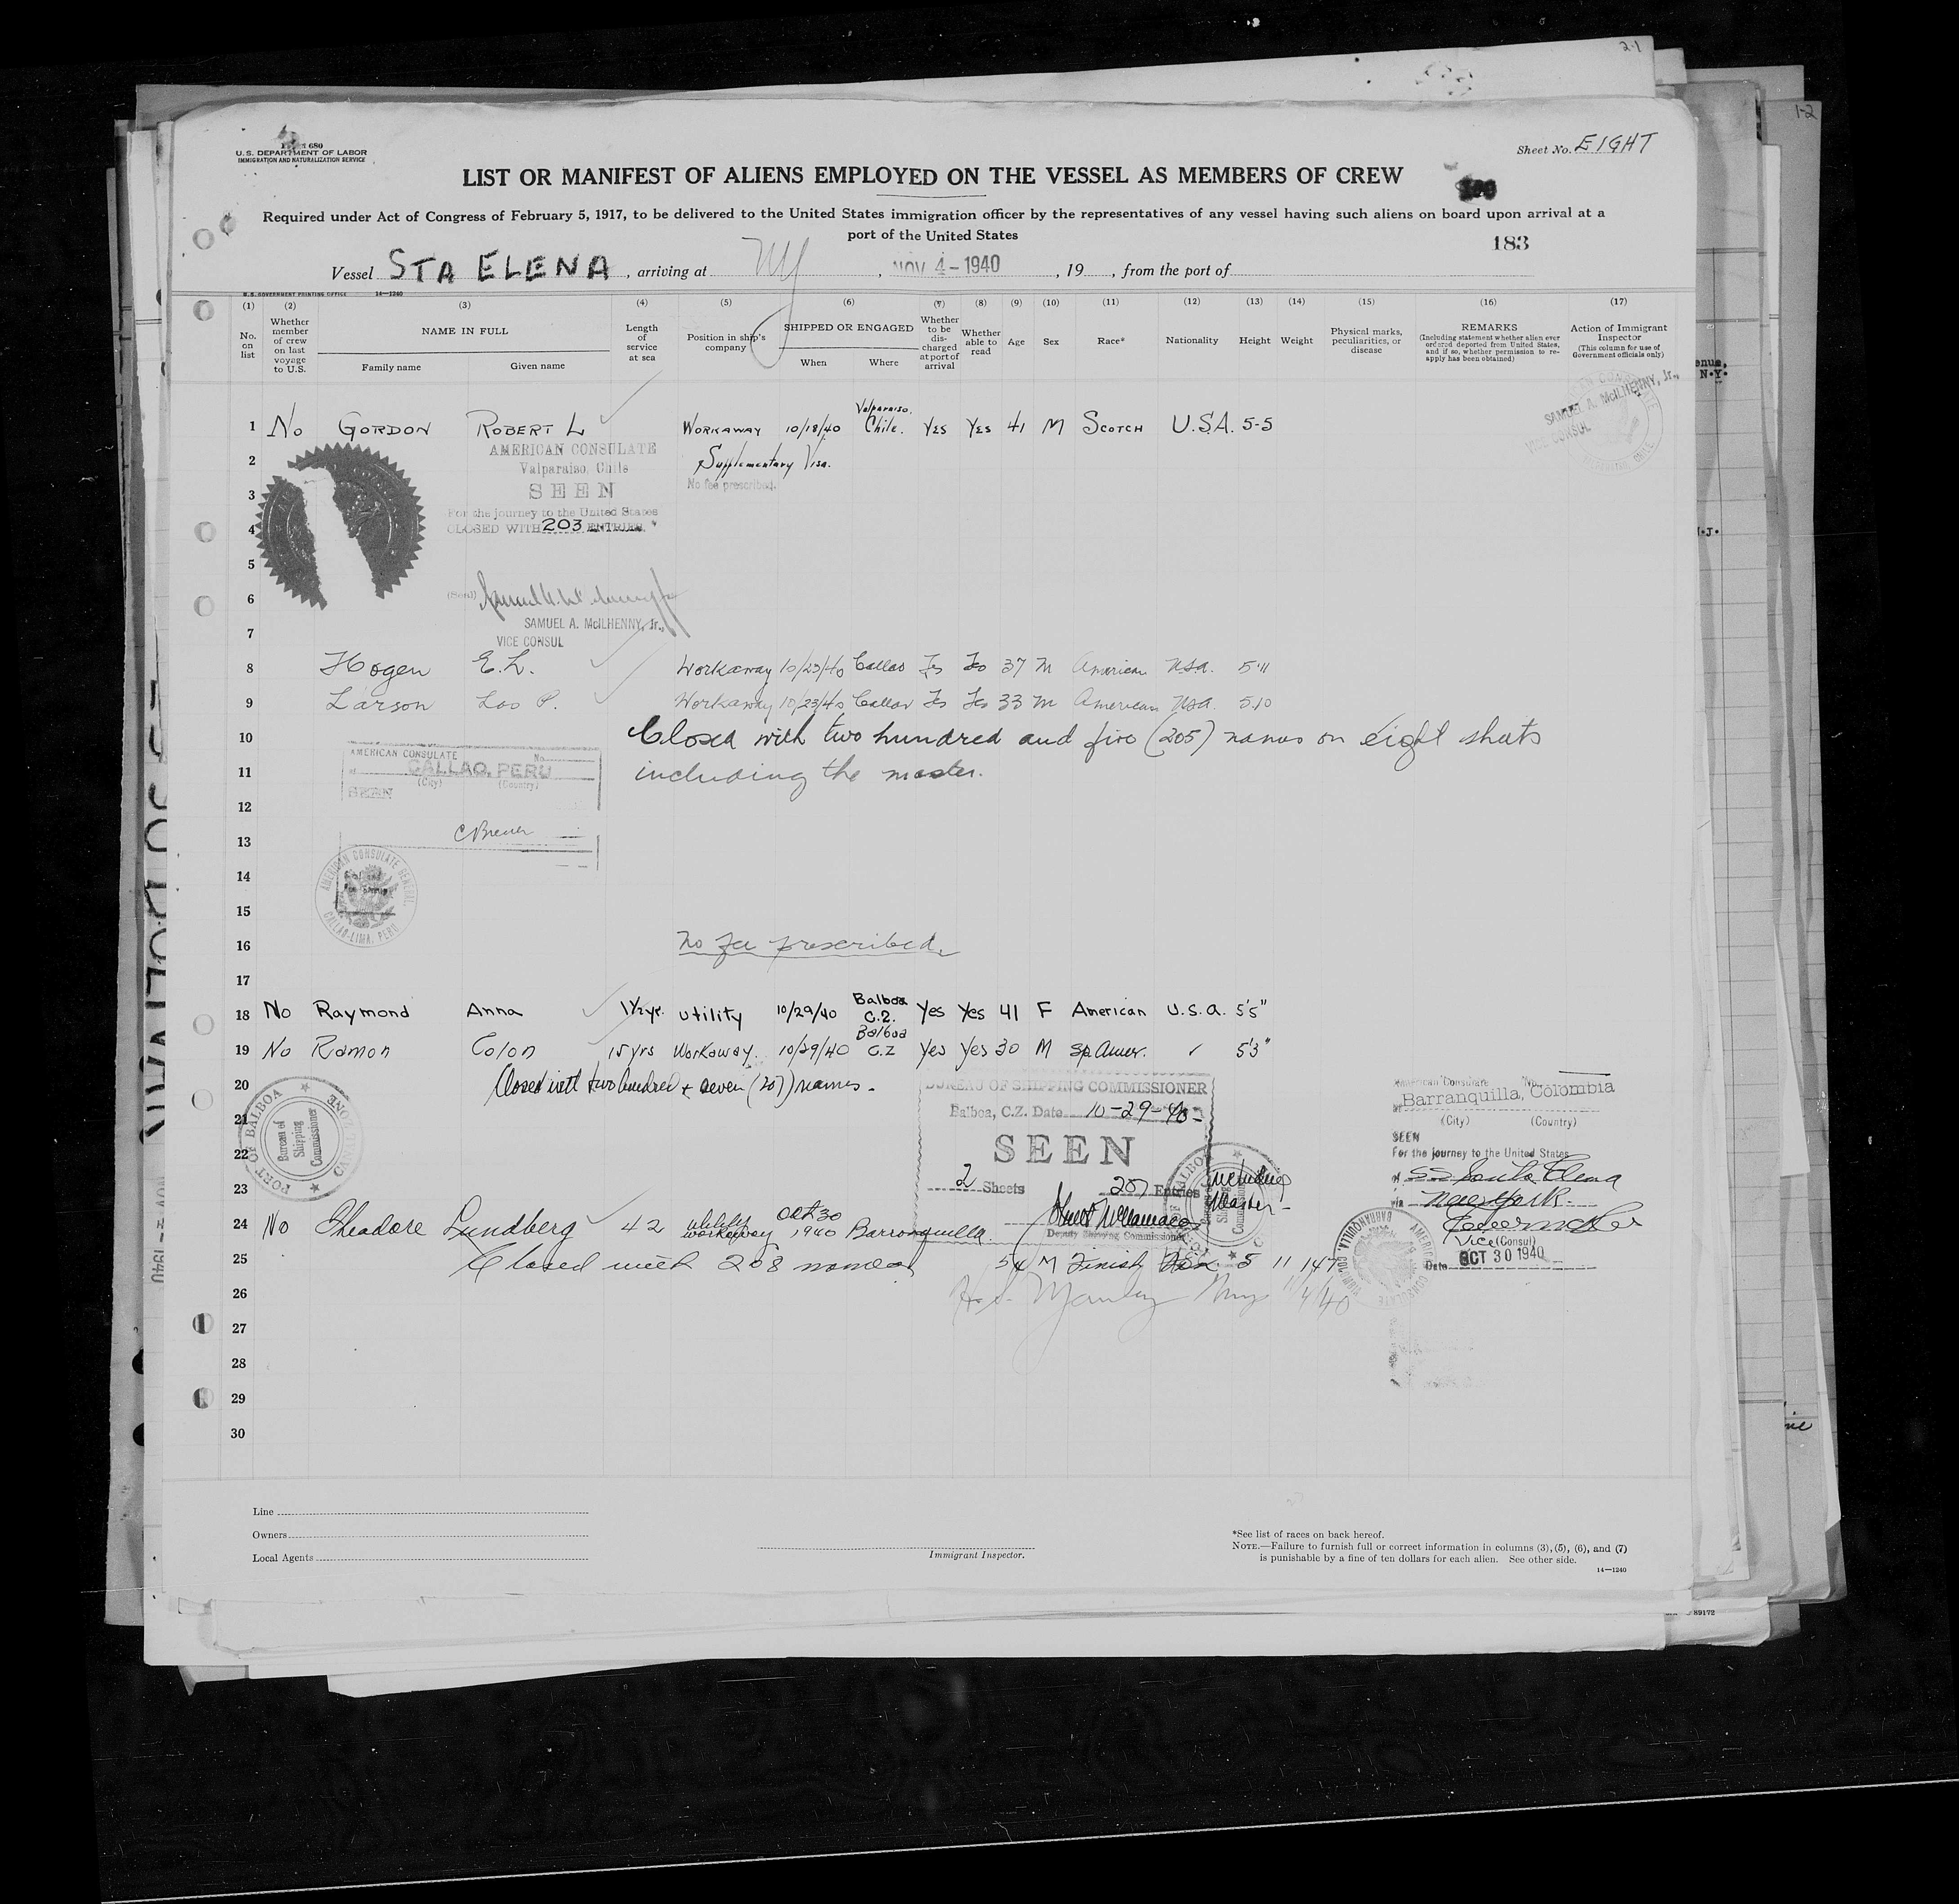 2-1
1-2
U.S. DEPARTMENT OF LABOR
IMMIGRATION AND NATURALIZATION SERVICE
Sheet No. EIGHT
LIST OR MANIFEST OF ALIENS EMPLOYED ON THE VESSEL AS MEMBERS OF CREW
Required under Act of Congress of February 5, 1917, to be delivered to the United States immigration officer by the representatives of any vessel having such aliens on board upon arrival at a
port of the United States
183
Vessel STA ELENA, arriving at NY, NOV 4-1940, 19, from the port of
U.S. GOVERNMENT PRINTING OFFICE 14—1240
(1) (2) (3) (4) (5) (6) (7) (8) (9) (10) (11) (12) (13) (14) (15) (16) (17)
No. on list
Whether member of crew on last voyage to U.S.
NAME IN FULL
Family name Given name
Length of service at sea
Position in ship's company
SHIPPED OR ENGAGED
When Where
Whether to be discharged at port of arrival
Whether able to read
Age
Sex
Race*
Nationality
Height
Weight
Physical marks, peculiarities, or disease
REMARKS
(Including statement whether alien ever ordered deported from United States, and if so, whether permission to reapply has been obtained)
Action of Immigrant Inspector
(This column for use of Government officials only)
SAMUEL A. McILHENNY, Jr.,
VICE CONSUL
1 No GORDON ROBERT L WORKAWAY 10/18/40 Valparaiso, Chile. YES YES 41 M SCOTCH U.S.A. 5-5
AMERICAN CONSULATE
2 Supplementary Visa.
Valparaiso, Chile
3 SEEN No fee prescribed.
For the journey to the United States
4 CLOSED WITH 203 ENTRIES.
5
6 (Seal)
SAMUEL A. McILHENNY, Jr.,
7 VICE CONSUL
8 Hogen E.L. Workaway 10/23/40 Callao Yes Yes 37 M American USA. 5'11
9 Larson Leo P. Workaway 10/23/40 Callao Yes Yes 33 M American USA. 5.10
10 Closed with two hundred and five (205) names on eight sheets
11 including the master.
AMERICAN CONSULATE No.
at CALLAO, PERU
(City) (Country)
SEEN
12
13
14
AMERICAN CONSULATE GENERAL
CALLAO-LIMA, PERU
15
16 No fee prescribed.
17
18 No Raymond Anna 1½ yr. Utility 10/29/40 Balboa C.Z. Yes Yes 41 F American U.S.A. 5'5"
19 No Ramon Colon 15 yrs Workaway. 10/29/40 Balboa C.Z Yes Yes 30 M Sp. Amer. ✓ 5'3"
20 Closed with two hundred & seven (207) names -
PORT OF BALBOA
CANAL ZONE
Bureau of Shipping Commissioner
BUREAU OF SHIPPING COMMISSIONER
Balboa, C.Z. Date 10-29-40-
SEEN
2 Sheets 207 Entries including Master -
Deputy Shipping Commissioner
American Consulate No.
at Barranquilla, Colombia
(City) (Country)
SEEN
For the journey to the United States
of SS Santa Elena
via New York
Vice (Consul)
Date OCT 30 1940
AMERICAN CONSULATE
BARRANQUILLA, COLOMBIA
21
22
23
24 No Theadore Lundberg 42 utility workaway Oct 30 1940 Barranquilla.
25 Closed with 208 names 54 M Finish 5 11 147
26 11/4/40
27
28
29
30
Line
Owners
Local Agents
Immigrant Inspector.
*See list of races on back hereof.
NOTE.—Failure to furnish full or correct information in columns (3), (5), (6), and (7)
is punishable by a fine of ten dollars for each alien. See other side.
14—1240
89172